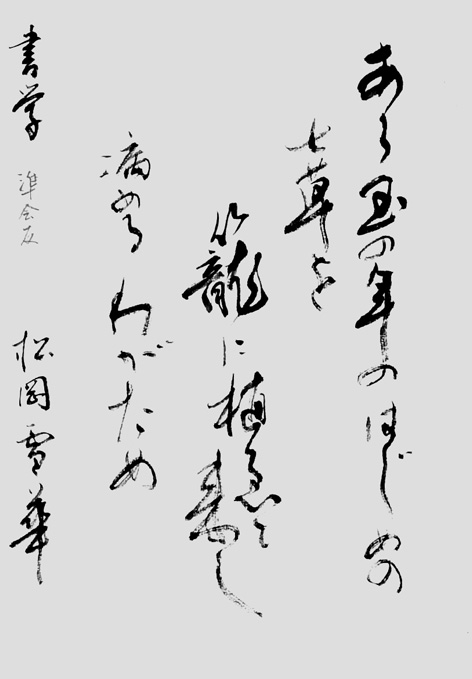 あら玉の年のはじめの
七草を
籠に植ゑて来し
病めるわがため
書学 準会友 松岡雪華